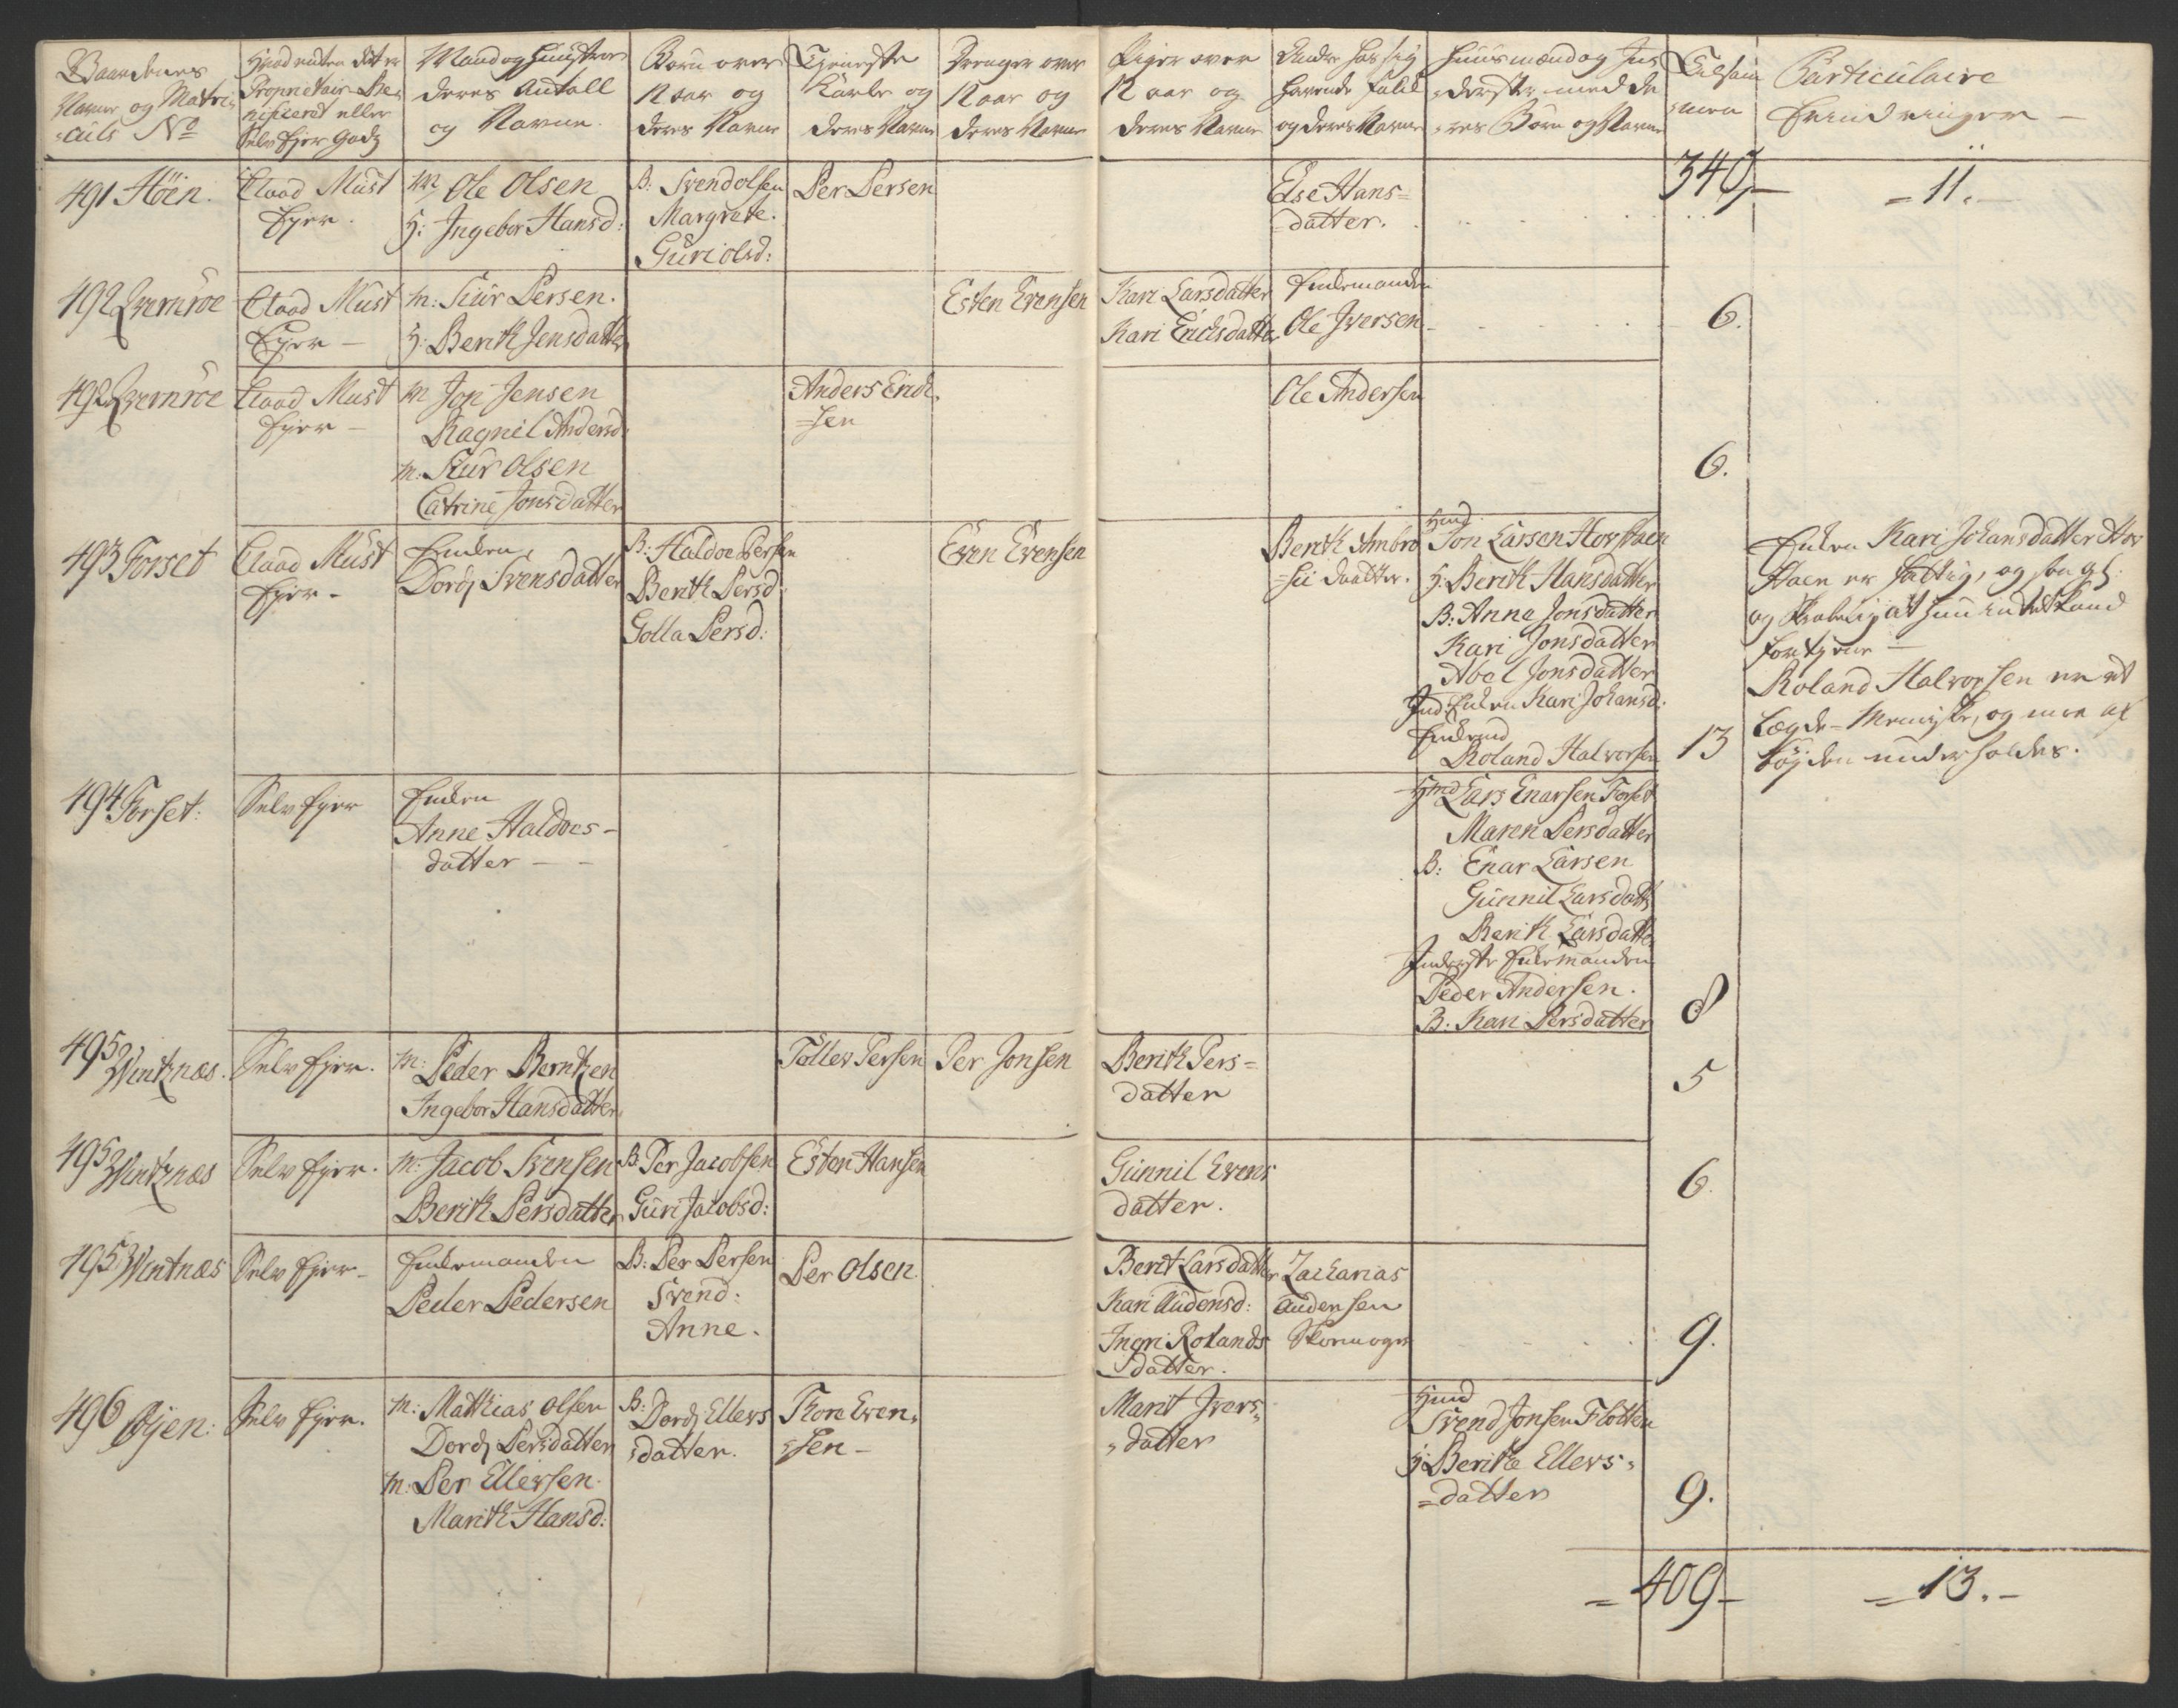 Gaardenes Navne og Matriculs No
Hvad enten det er Proprietair Beneficeret eller Selv Ejer Godz
Mand og Hustroe deres Antall og Navne.
Børn over 12 aar og deres Navne
Tjeneste Karle og deres Navne
Drenge over 12 aar og deres Navne
Piger over 12 aar og deres Navne
Andre hos sig havende Folk og deres Navne
Huusmænd og Inderster med deres Børn og Navne
Tilsammen
Particulaire Erindringer
340
= 11.
491 Höen.
Claad Must
Ejer.
M Ole Olsen
H: Ingebor Hansd:
B: Svend Olsen
Margrete.
Guri Olsd:
Per Persen
Else Hans=
=datter.
492 Qvernröe
Claad Must
Ejer
M: Siur Persen.
H: Berith Jensdatter
Esten Evensen
Kari Larsdatter
Kari Erichsdatter
Enkemanden
Ole Iversen
6.
492 Qvernröe
Claad Must
Ejer
M Jon Jensen
Ragnil Andersd:
M: Siur Olsen
Catrine Jonsdatter
Anders Erich=
=sen
Ole Andersen
6.
493 Forset
Claad Must
Ejer
Enken
Dordj Svensdatter
B: Haldoe Persen
Berith Persd:
Golla Persd:
Even Evensen
Berith Ambro
=sii daatter.
Hmd
Jon Larsen
H: Berith Hansdatter
B: Anne Jonsdatter
Kari Jonsdatter
Abel Jonsdatter
Ind: Enken Kari Johansd:
Roland Halvorsen
13
Enken Kari Johansdatter
er fattig, og
og at hun intet kand
fortjene
Roland Halvorsen er et
Lægde=Menniske, og maa af
Bøgden underholdes.
494 Forset:
Selv Ejer
Enken
Anne Haldoes=
datter
Hmd Lars Enarsen Forset
Maren Persdatter
B: Enar Larsen
Gunnil Larsdatt
Berith Larsdatter
Inderste Enkemanden
Peder Andersen.
B: Kari Persdatter
8
495 Wintznæs.
Selv Ejer.
M: Peder Berntzen
Ingebor Hansdatter
Toller Persen
Per Jonsen
Berith Pers=
datter
5
495 Wintznæs
Selv Ejer.
M: Jacob Svensen
Berith Persdatter
B: Per Jacobsen
Guri Jacobsd:
Esten Hansen
Gunnil Evens
datter.
6.
495 Wintnæs
Selv Ejer
Enkemanden
Peder Pedersen
B: Per Persen
Svend:
Anne.
Per Olsen.
Berit Larsdatter
Kari Audensd:
Ingri Rolands
datter.
Zacharias
Andersen
Skomager
9.
496 Øjen:
Selv Ejer.
M: Mathias Olsen
Dordj Persdatter
M: Per Ellevsen.
Marith Hansd:
B:
Dordj Ellevs
=datter.
Tkore Even=
=sen
Marit Ivers=
=datter
Hmd
Svend Jonsen Flotten
H: Berithe Ellevs=
=datter
9.
= 409
= 13.